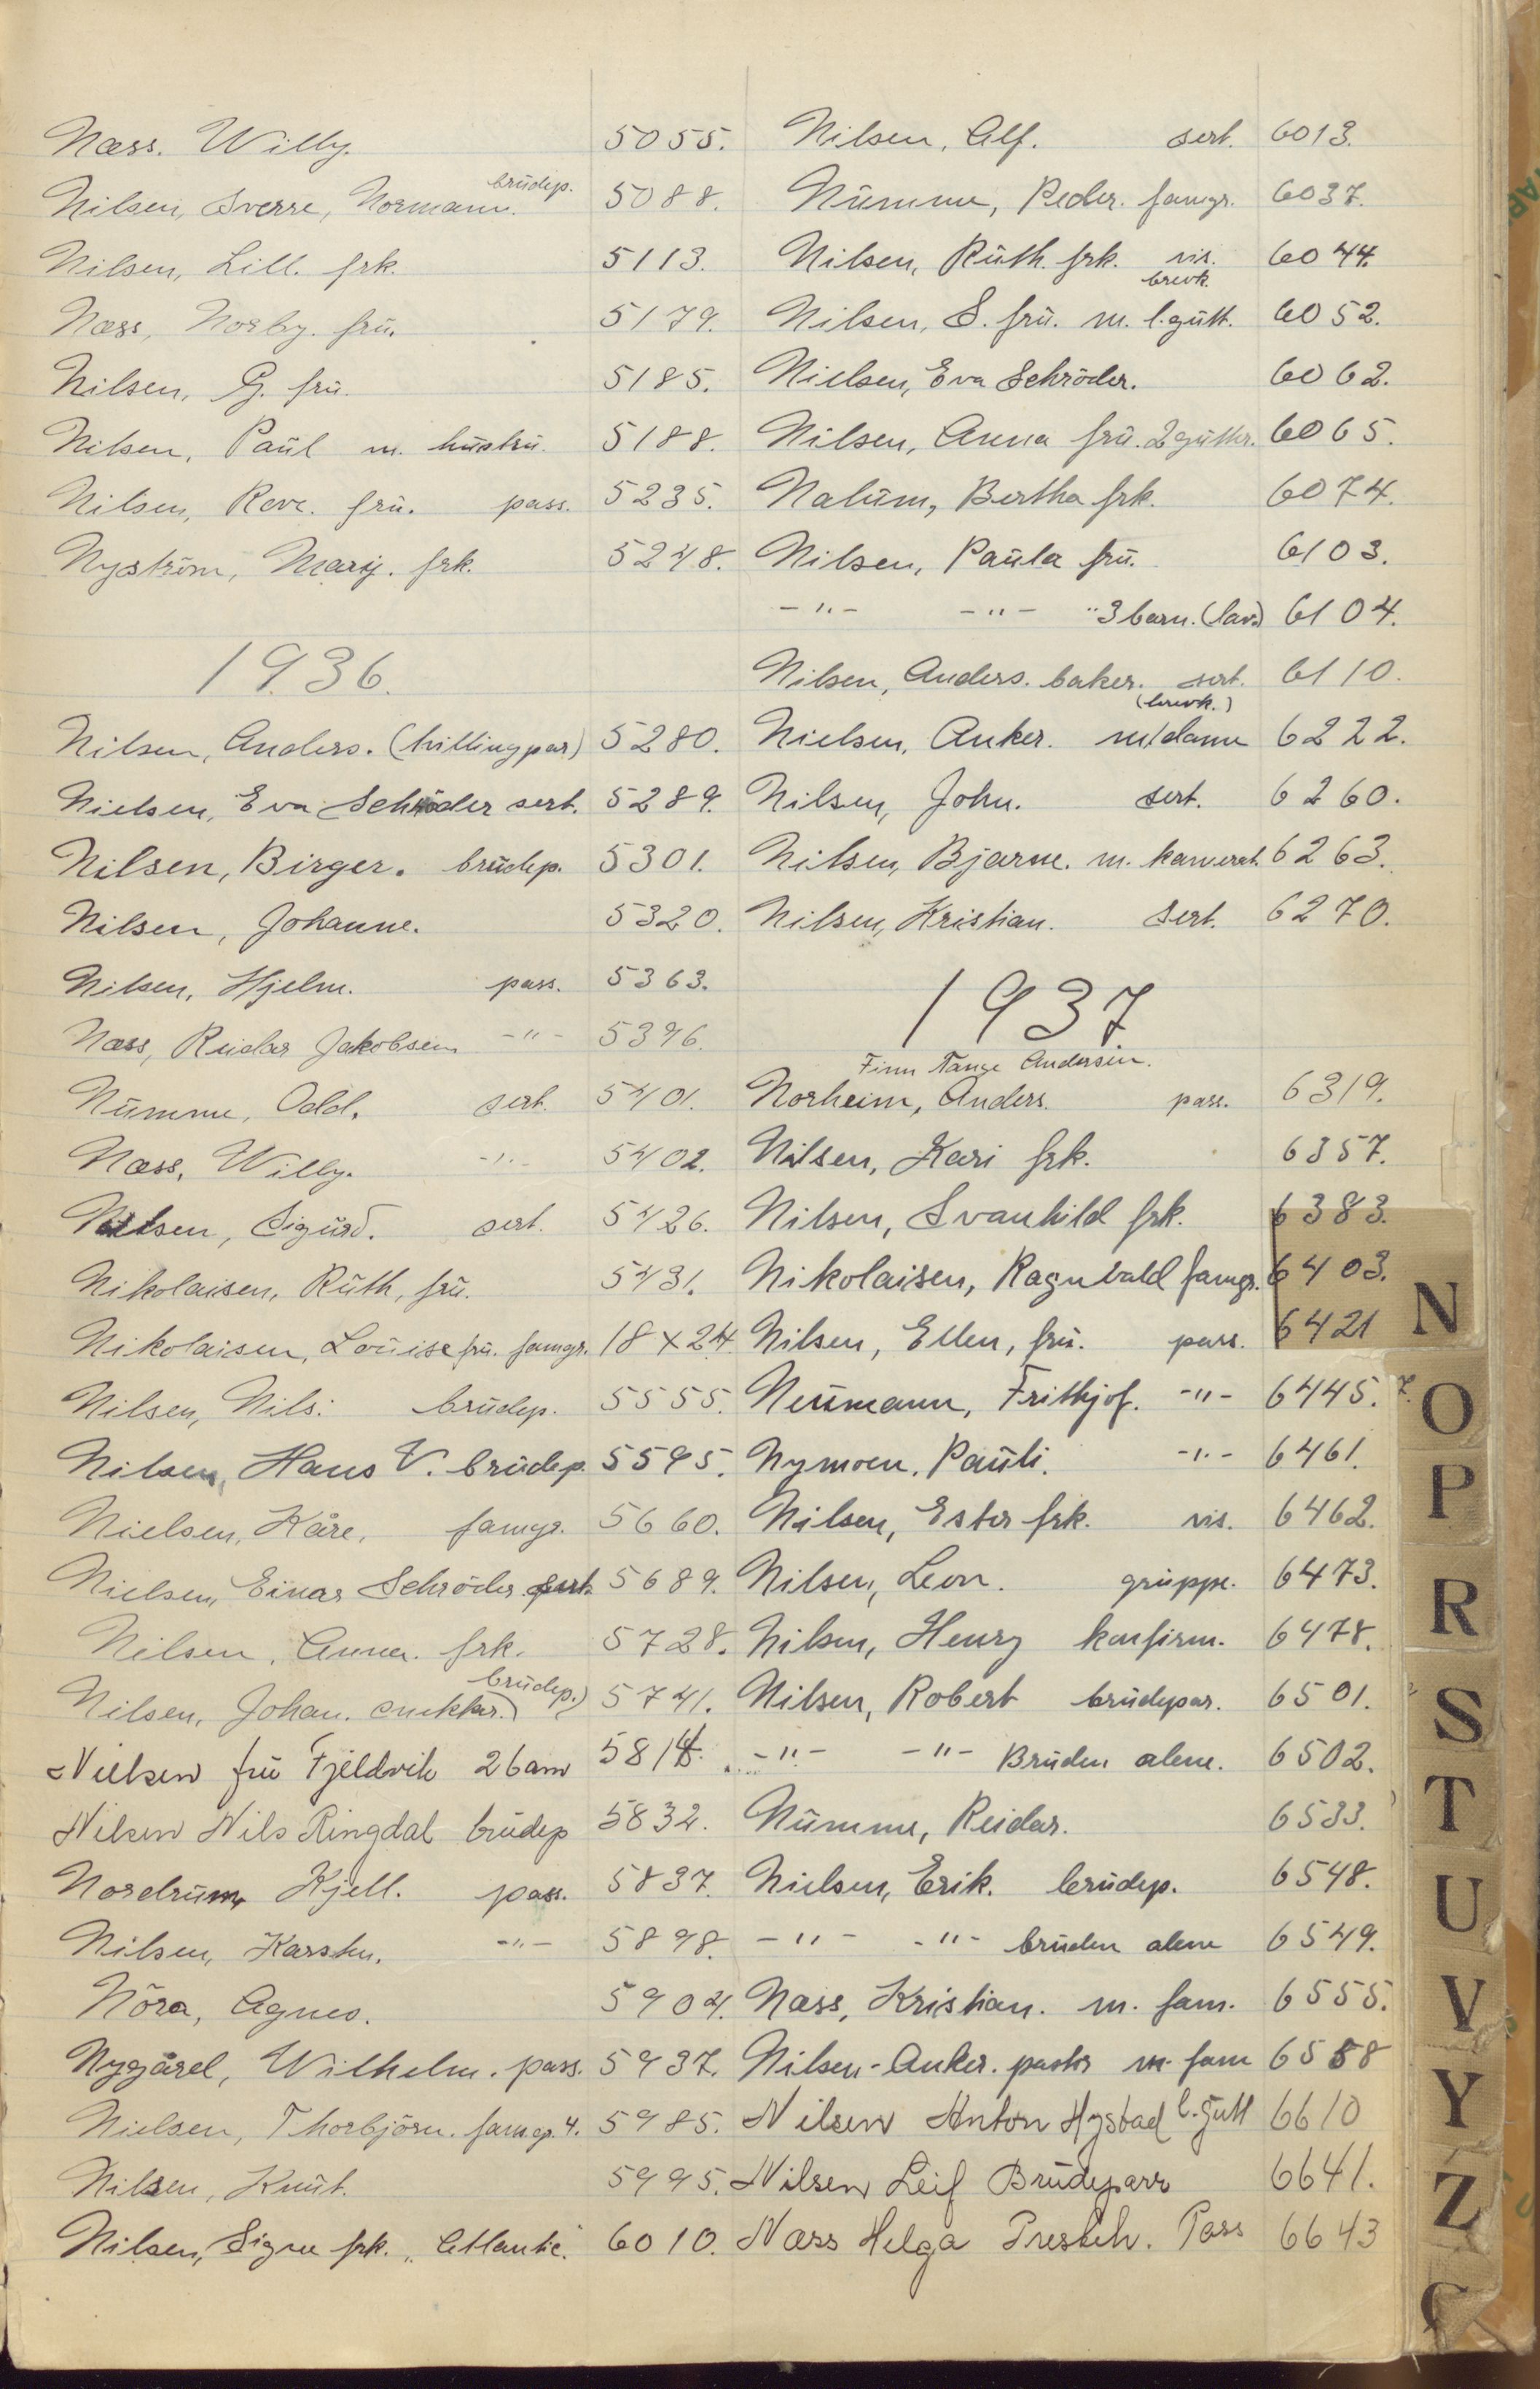 Næss. Willy. 5055.
Nilsen, Sverre, Normann. brüdep. 5088.
Nilsen, Lill. frk. 5113.
Næss, Norby. frü. 5179.
Nilsen, G. frü. 5185.
Nilsen, Paül m. hüstrü. 5188.
Nilsen, frü. pass. 5235.
Nyström, Mary. frk. 5248.
1936.
Nilsen, Anders. (tvillingpar) 5280.
Nielsen, Eva Schröder sert. 5289.
Nilsen, Birger. brüdep. 5301.
Nilsen, Johanne. 5320.
Nilsen, Hjelm. pass. 5363.
Næss, Reidar Jakobsen -"- 5396.
Nümme, Odd. sert. 5401.
Næss, Willy. -"- 5402.
Nilsen, Sigürd. sert. 5426.
Nikolaisen, Rüth, frü. 5431.
Nikolaisen, Loüise frü. famgr. 18 x 24.
Nilsen, Nils. brüdep. 5555.
Nilsen, Hans V. brüdep. 5595.
Nielsen, Kåre, famgr. 5660.
Nielsen, Einar Schröder sert. 5689.
Nilsen, Anna. frk. 5728.
Nilsen, Johan. snekker. brüdep. 5741.
Nielsen frü Fjeldvik 2 barn 5814.
Nilsen Nils Ringdal brüdep 5832.
Nordrüm, Kjell. pass. 5837.
Nilsen, Karsten. -"- 5898.
Nöra, Agnes. 5904.
Nygård, Wilhelm. pass. 5937.
Nielsen, Thorbjörn. famgr. 4. 5985.
Nilsen, Knüt. 5995.
Nilsen, Signe frk. "Atlantic" 6010.
Nilsen, Alf. sert. 6013.
Nümme, Peder. famgr. 6037.
Nilsen, Rüth. frk. vis. brevk. 6044.
Nilsen, S. frü. m. l. gütt. 6052.
Nielsen, Eva Schröder. 6062.
Nilsen, Anna frü. 2 gütter. 6065.
Nalüm, Bertha frk. 6074.
Nilsen, Paüla frü. 6103.
-"- -"- " 3 barn. 6104.
Nilsen, Anders. baker. sert. 6110.
Nielsen, Anker. m/dame (brevk.) 6222.
Nilsen, John. sert. 6260.
Nilsen, Bjarne. m. kamerat 6263.
Nilsen, Kristian. sert. 6270.
1937
Finn Tange Andersen.
Norheim, Anders. pass. 6319.
Nilsen, Kari frk. 6357.
Nilsen, Svanhild frk. 6383.
Nikolaisen, Ragnvald famgr. 6403.
Nilsen, Ellen, frü. pass. 6421
Neümann, Frithjof. -"- 6445.
Nymoen, Paüli. -"- 6461.
Nilsen, Ester frk. vis. 6462.
Nilsen, Leon. grüppe. 6473.
Nilsen, Henry konfirm. 6478.
Nilsen, Robert brüdepar. 6501.
-"- -"- Brüden alene. 6502.
Nümme, Reidar. 6533.
Nielsen, Erik. brüdep. 6548.
-"- -"- brüden alene 6549.
Næss, Kristian. m. fam. 6555.
Nilsen-Anker. pastor m. fam 6558
Nilsen Anton Hystad l. gütt 6610
Nilsen Leif Brüdeparr 6641.
Næss Helga Presteh. Pass 6643
N
O
P
R
S
T
U
V
Y
Z